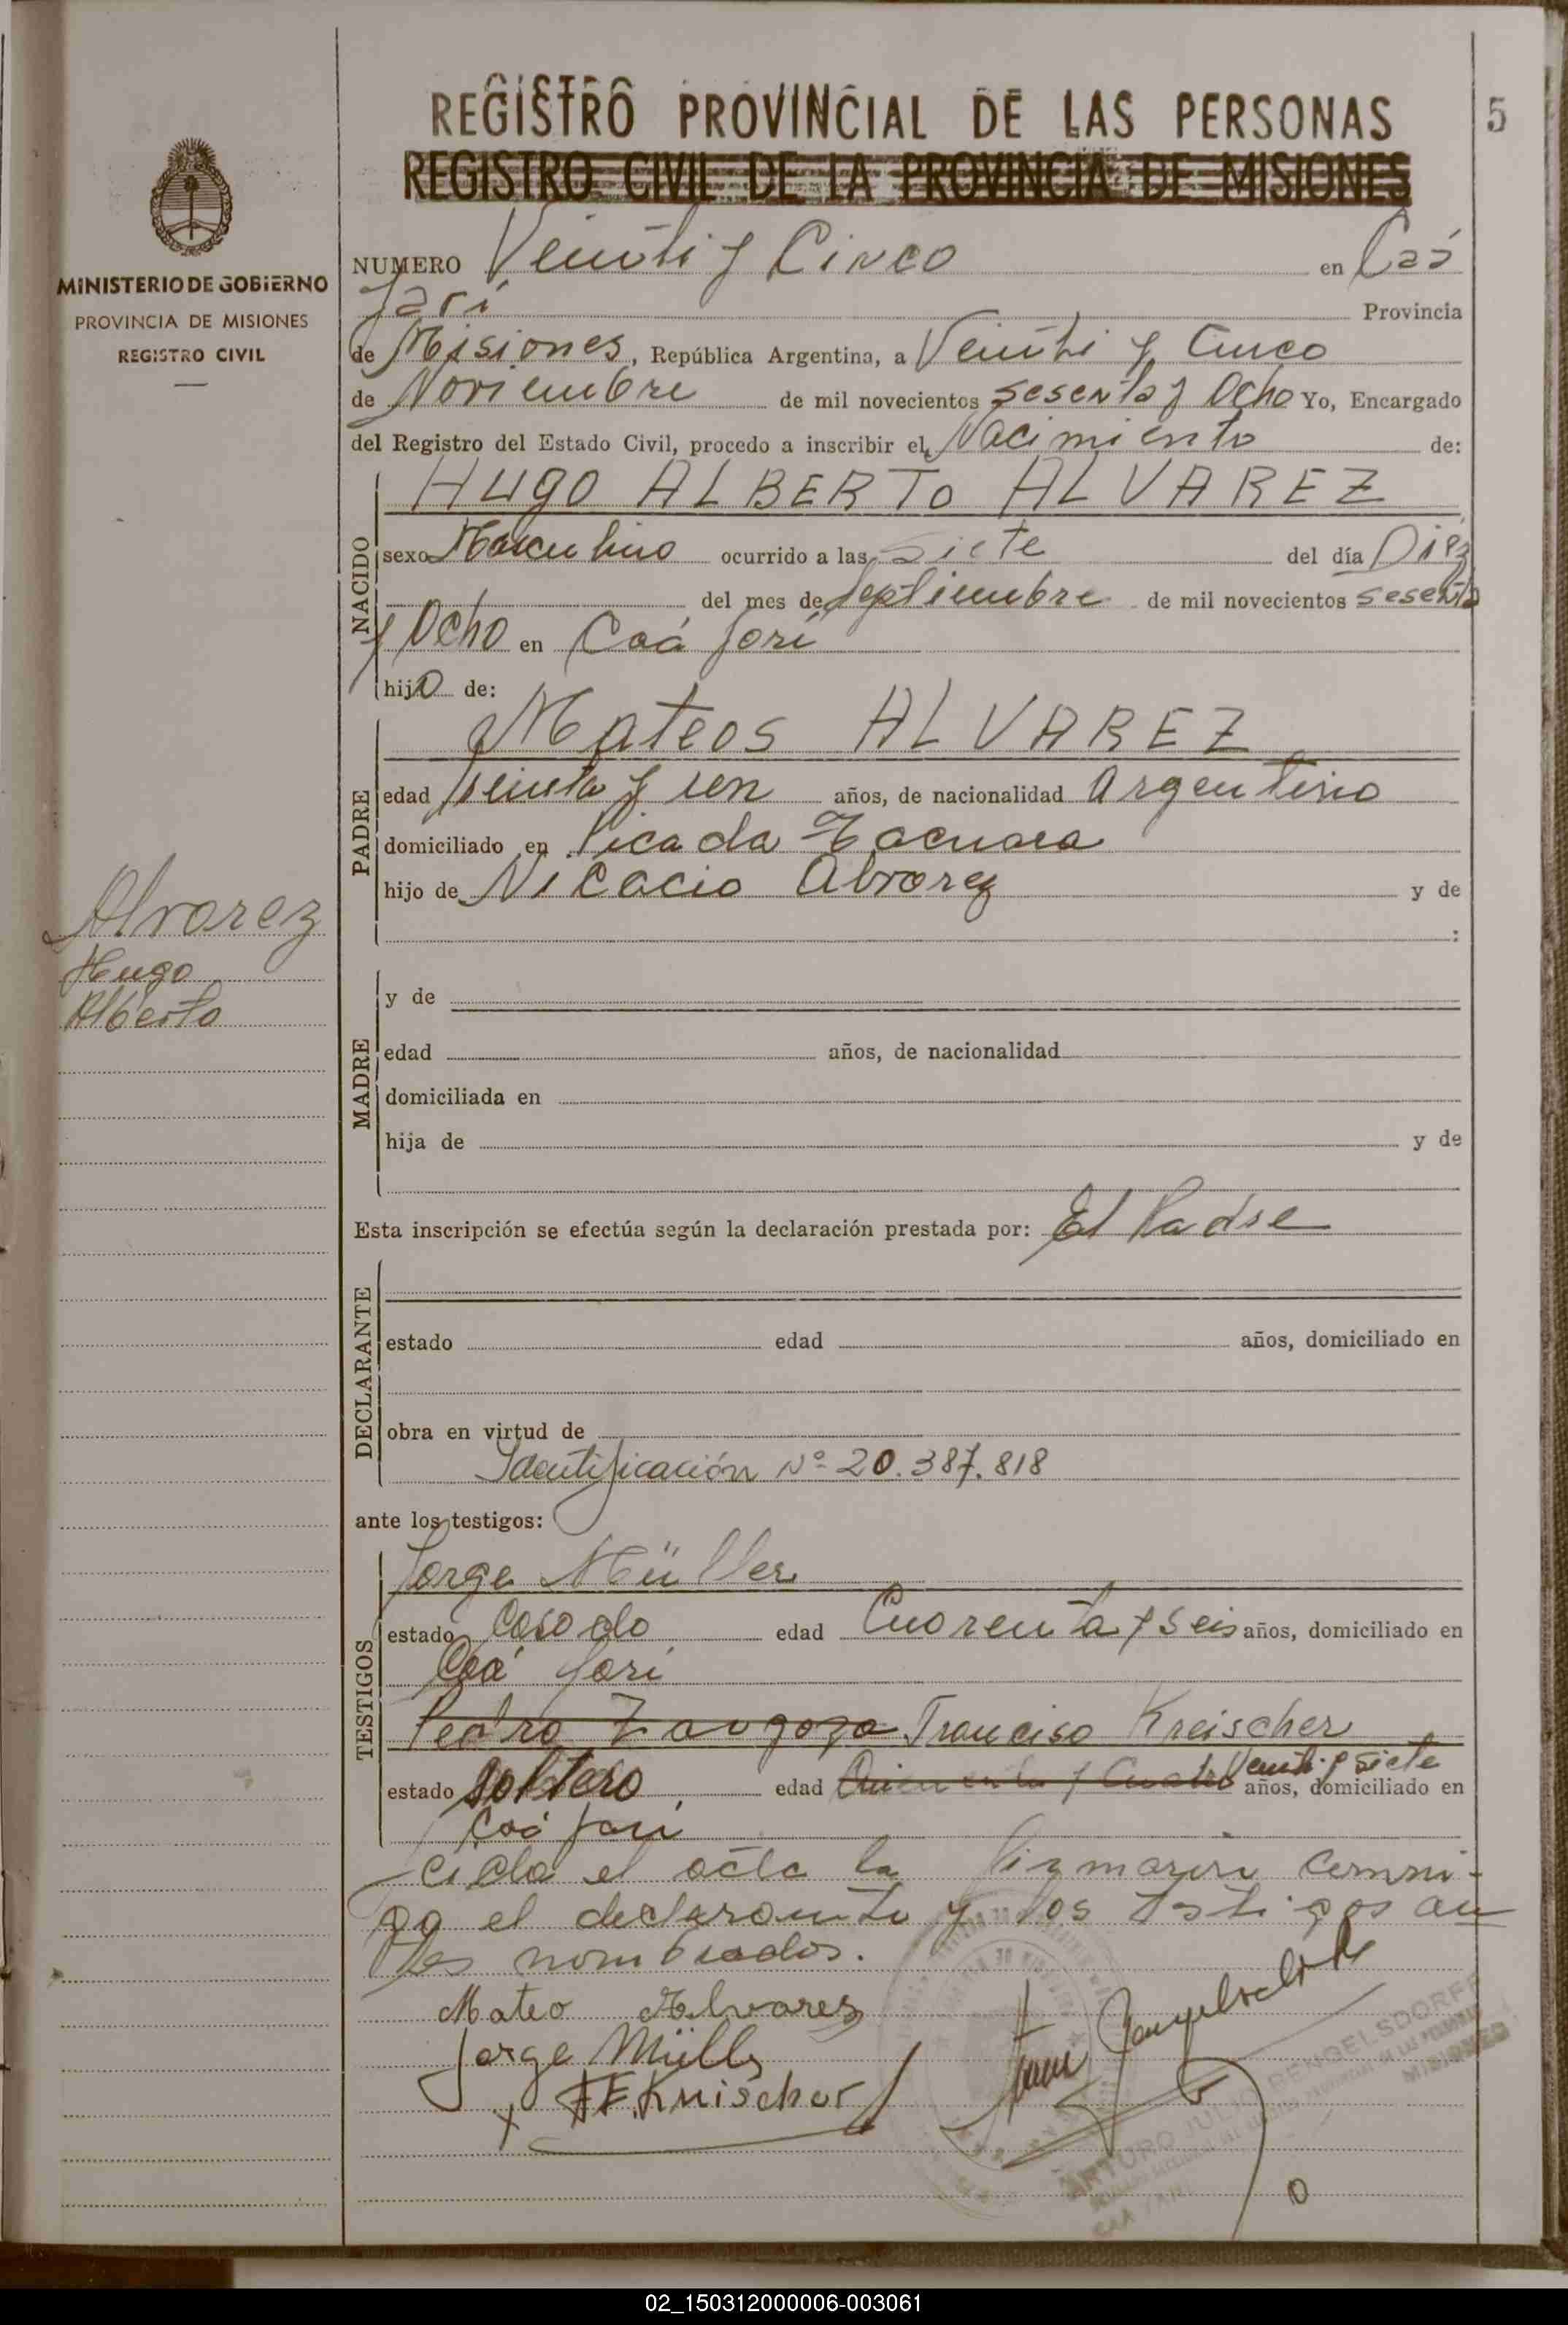 REGISTRO PROVINCIAL DE LAS PERSONAS
REGISTRO CIVIL DE LA PROVINCIA DE MISIONES
5
MINISTERIO DE GOBIERNO
PROVINCIA DE MISIONES
REGISTRO CIVIL
NUMERO Veinti y Cinco en Caá
Yarí Provincia
de Misiones, República Argentina, a Veinti y Cinco
de Noviembre de mil novecientos sesenta y Ocho Yo, Encargado
del Registro del Estado Civil, procedo a inscribir el Nacimiento de:
NACIDO
Hugo ALBERTO ALVAREZ
sexo Masculino ocurrido a las Siete del día Diez
del mes de Septiembre de mil novecientos sesenta
y Ocho en Caá Yarí
hijo de:
PADRE
Mateos ALVAREZ
edad treinta y un años, de nacionalidad Argentino
domiciliado en Picada Tacuara
hijo de Nicacio Alvarez y de
:
Alvarez
Hugo
Alberto
MADRE
y de
edad años, de nacionalidad
domiciliada en
hija de y de
Esta inscripción se efectúa según la declaración prestada por: El Padre
DECLARANTE
estado edad años, domiciliado en
obra en virtud de
Identificación Nº 20.387.818
ante los testigos:
TESTIGOS
Jorge Müller
estado Casado edad Cuarenta y seis años, domiciliado en
Caá Yarí
Pedro Franciso Kreischer
estado soltero edad Veinti y Siete años, domiciliado en
Caá Yarí
el acta la firmaron conmi-
go el declarante y los testigos an
tes nombrados.
Mateo Alvarez
Jorge Müller
ARTURO JULIO BENGELSDORFF
MISIONES
CAA YARI
02_150312000006-003061